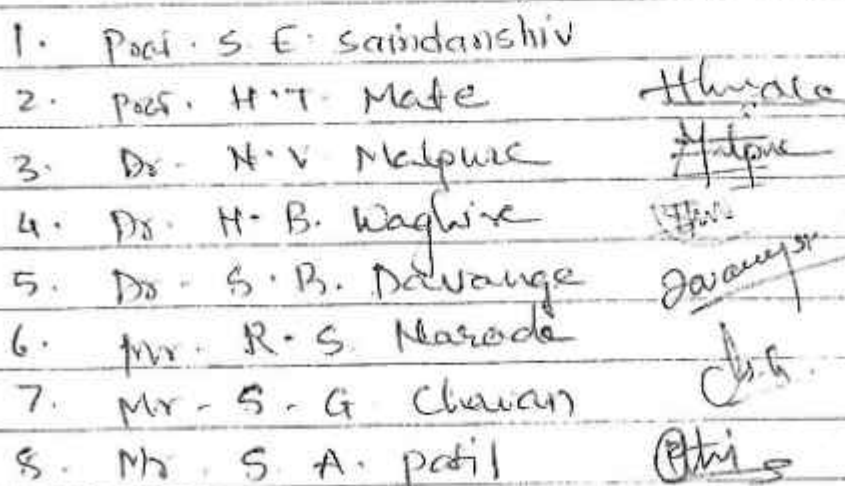 1. Prof. S. E. Saindanshiv
2. Prof. H.T. Mate
3. Dr. N.V Malpure
4. Dr. H.B. Waghire
5. Dr. S.B. Davange
6. Mr. R.S. Narode
7. Mr. S.G. Chavan
8. Mr. S.A. Patil